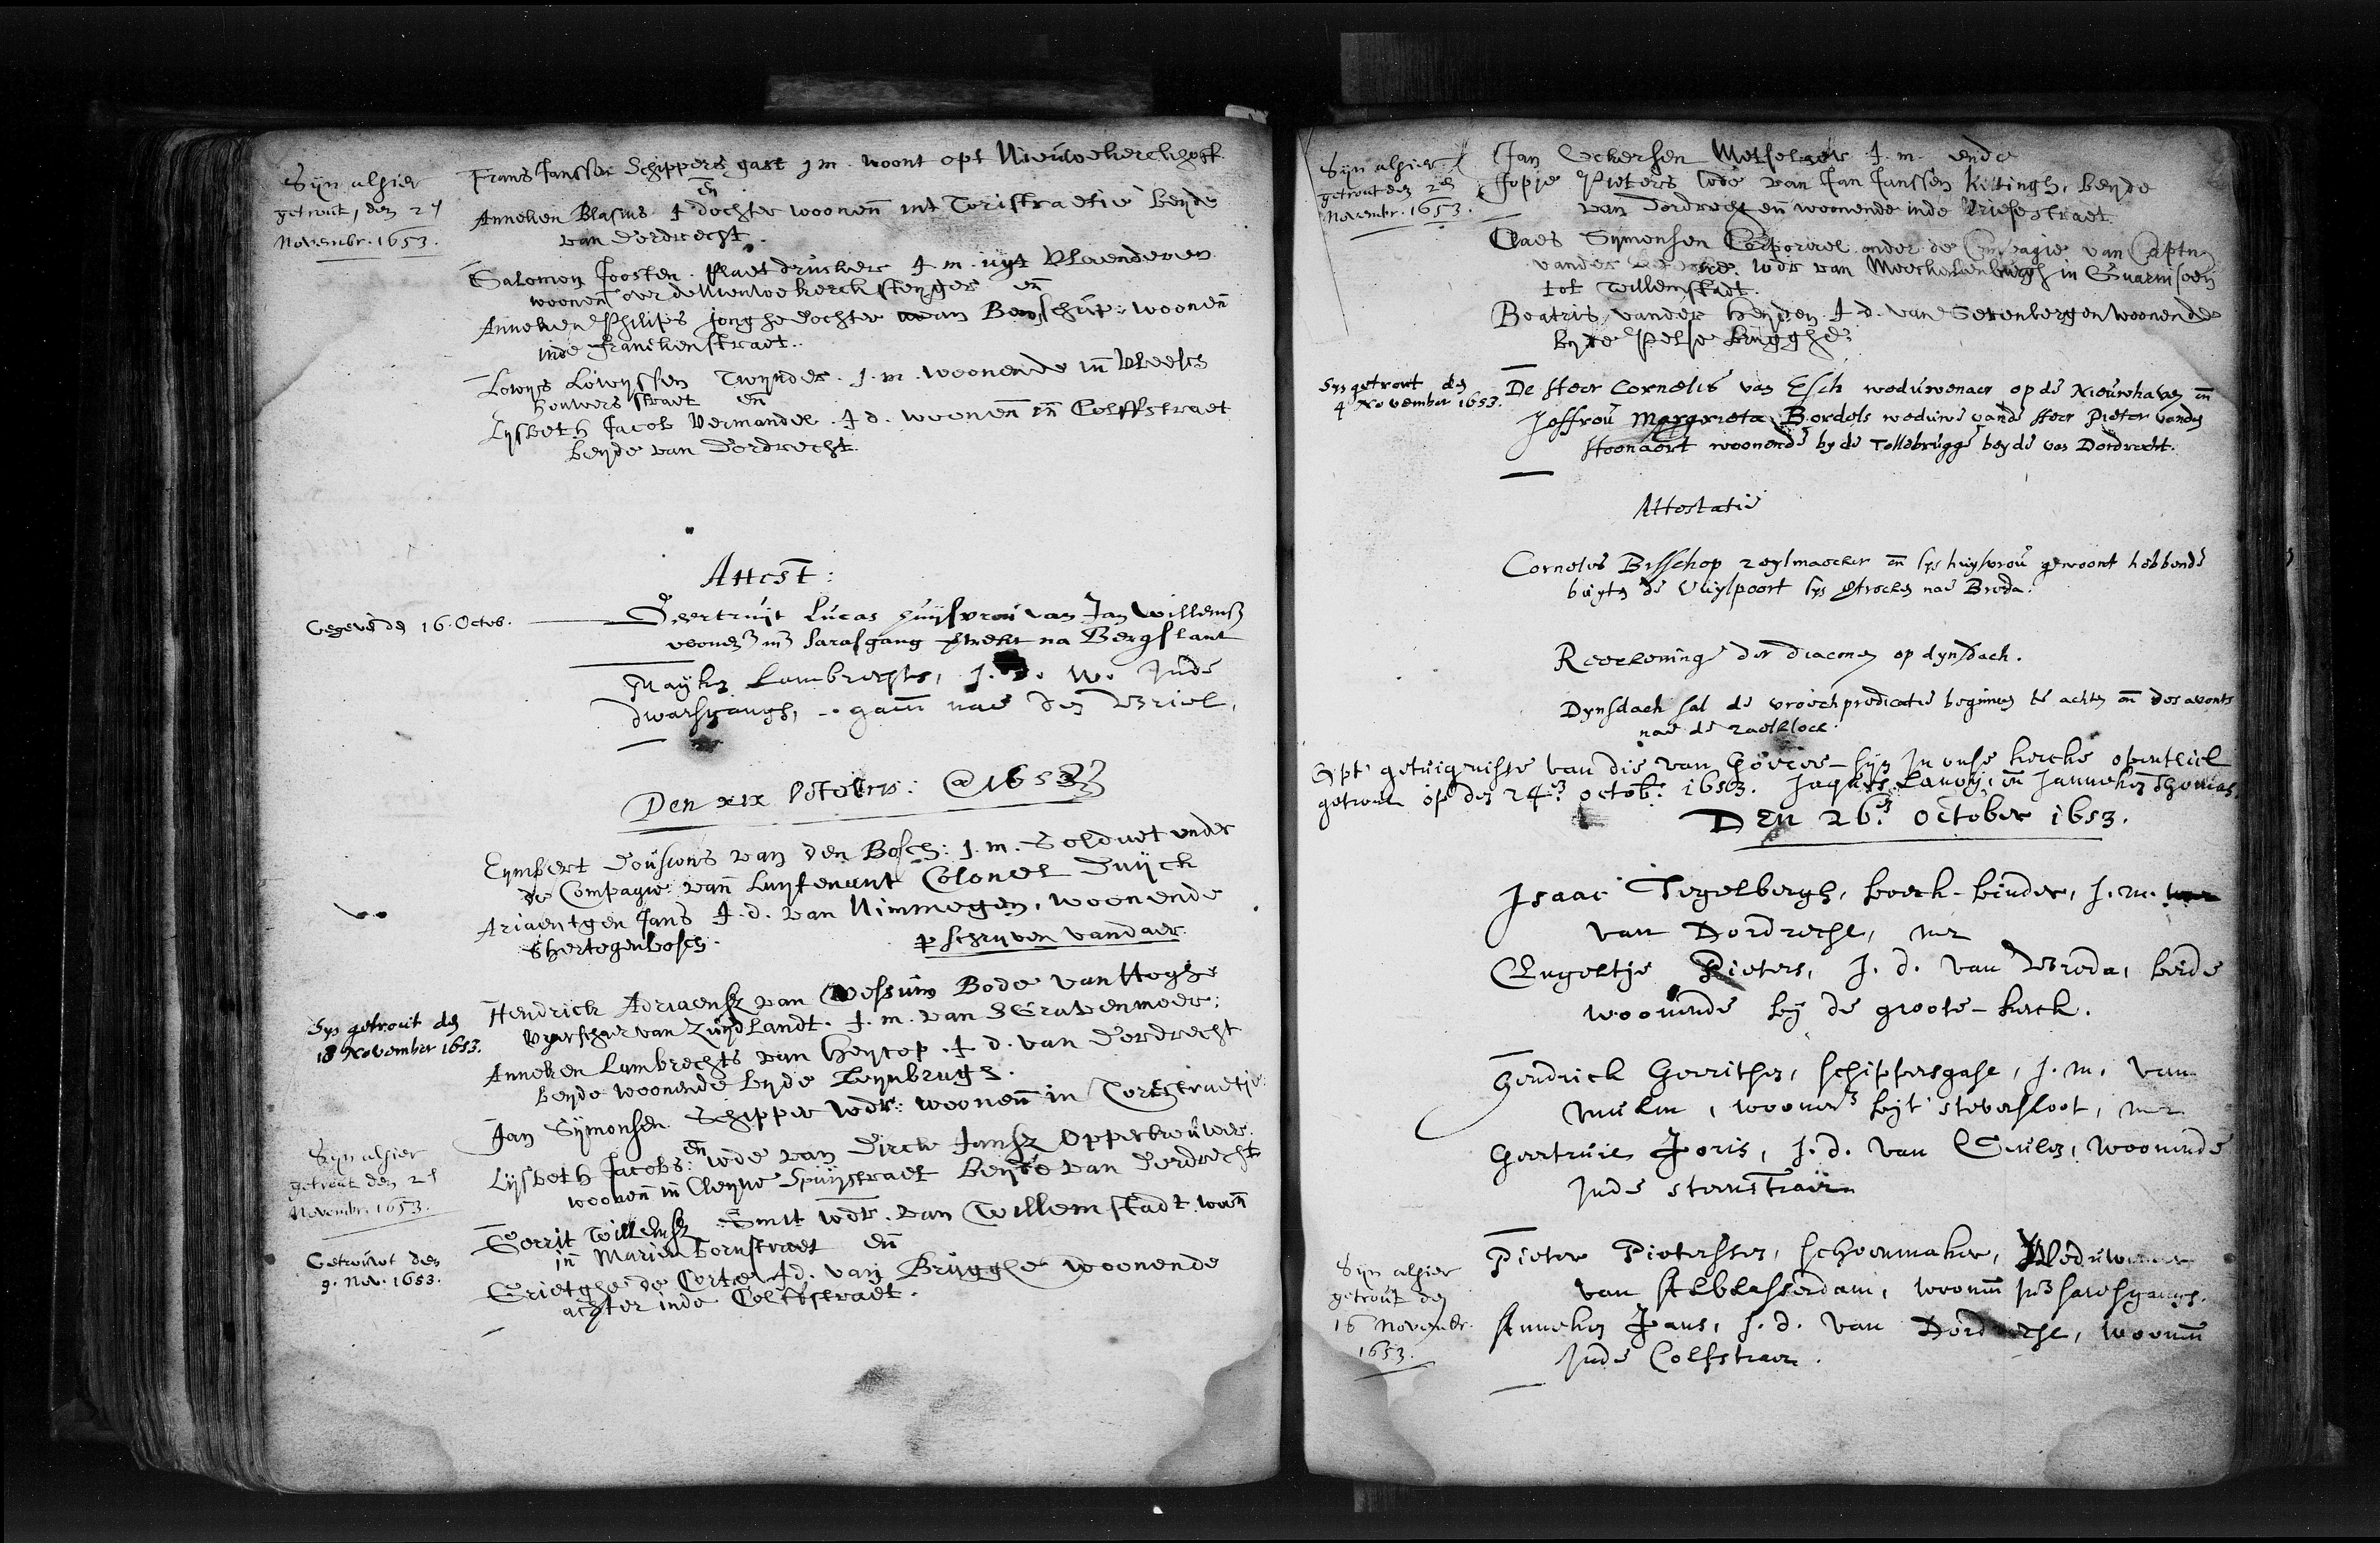 Syn alhier
getrout, den 2d
Novembr. 1653.
Frans Janssen Schippers gast j m. woont opt Nieuwekerckhoff.
en
Anneken Blasius J dochter woonen int Toristraetie beyde
van Dordrecht.
Salomon Joosten. plaetdrucker J. m. uyt Vlaenderen
woonen over de Nieuwekerck en
Anneken Philips jonghe dochter van woonen
inde francken straet.
Lowys Lowyssen Twynder. J. m. woonende in Vleesch
houwers straet en
Lysbeth Jacob Vermandel. J d. woonen in Colffstraet
beyde van Dordrecht.
Attest:
Gegeve den 16. Octob.
Geertruyt Lucas huysvrou van Jan Willemsz
woonen in Sarasgang na Bergslant
Mayken Lambrechts, J. D. w. Inde
dwarsgangh, gaen nae den Briel.
Den xix Octobris: @ 1653
Eymbert van den Bosch: J. m. Soldaet onder
de Compagie van Luytenant Colonel Duyck
Ariaentgen Jans J. d. van Nimmegen, woonende
Shertogenbosch.
p schryven vandaer.
Syn getrout den
18 November 1653.
Hendrick Adriaensz van Wessum Bode van Hooghe
van Zuydlandt. J. m. van SGravenmoer:
Anneken Lambrechts van Heycop. J d. van Dordrecht
beyde woonende byde Leynbrugh.
Syn alhier
getrout den 2d
Novembr. 1653.
Jan Symonsen Schipper wdr: woonen in Toristraetje
en
Lysbeth Jacobs: wde van Dirck Jansz Opperbrouwer.
woonen in Cleyne Spuystraet beyde van Dordrecht
Getrouwt den
9. Nov. 1653.
Gerrit Willemsz Smit wdr. van Willemstadt woon
in Marienbornstraet en
Grietghe de Corte J d. van Brugghe woonende
achter inde Colffstraet.
Syn alhier
getrout den 2d
Novembr. 1653.
Jan Eckersen Metselaer J. m. ende
Jopje Pieters wde van Jan Janssen Kittingh, beyde
van Dordrecht en woonende inde Vriesestraet.
Claes Symonsen Corporael onder de Compagie van Captn
vander wdr van in Guarnisoen
tot Willemstadt.
Beatris vander Heyden J d. van Sevenbergen woonende
byde Pelse brugghe
Syn getrout den
4 November 1653.
De Heer Cornelis van Esch weduwenaer op de Nieuwhaven en
Joffrou Margrieta Bordels weduwe vande Heer Pieter vanden
Hoonaert woonende by de Tollebrugge beyde van Dordrecht.
Attestatie
Cornelis Bisschop zeylmaecker en syn huysvrou gewoont hebbende
buyten de Vuylpoort syn getrocken nae Breda.
Reeckeninge der diaconen op dynsdach.
Dynsdach sal de vroechpredicatie beginnen te achten en des avonts
nae de raetklock.
Opt getuignisse van die van Goeree syn In onse kercke openlick
getrout op den 24en octob. 1653. Jaques Lanoy, en Janneken Thomas.
DEN 26en October 1653.
Isaac Tegelbergh, boeck-binder, J. m.
van Dordrecht, met
Engeltje Pieters, J. d. van Breda, beide
woonende by de groote-kerck.
Hendrick Gerritsen, schippersgast, J. m. van
, woonen byt steversloot, met
Geertruit Joris, J. d. van , woonende
Inde
Syn alhier
getrout den
16 Novembr.
1653.
Pieter Pietersen, schoenmaker, Weduwenaer
van Alblasserdam, woonen Int sarisgangh.
Anneken Jans, J. d. van Dordrecht, woonen
Inde Colfstraet.